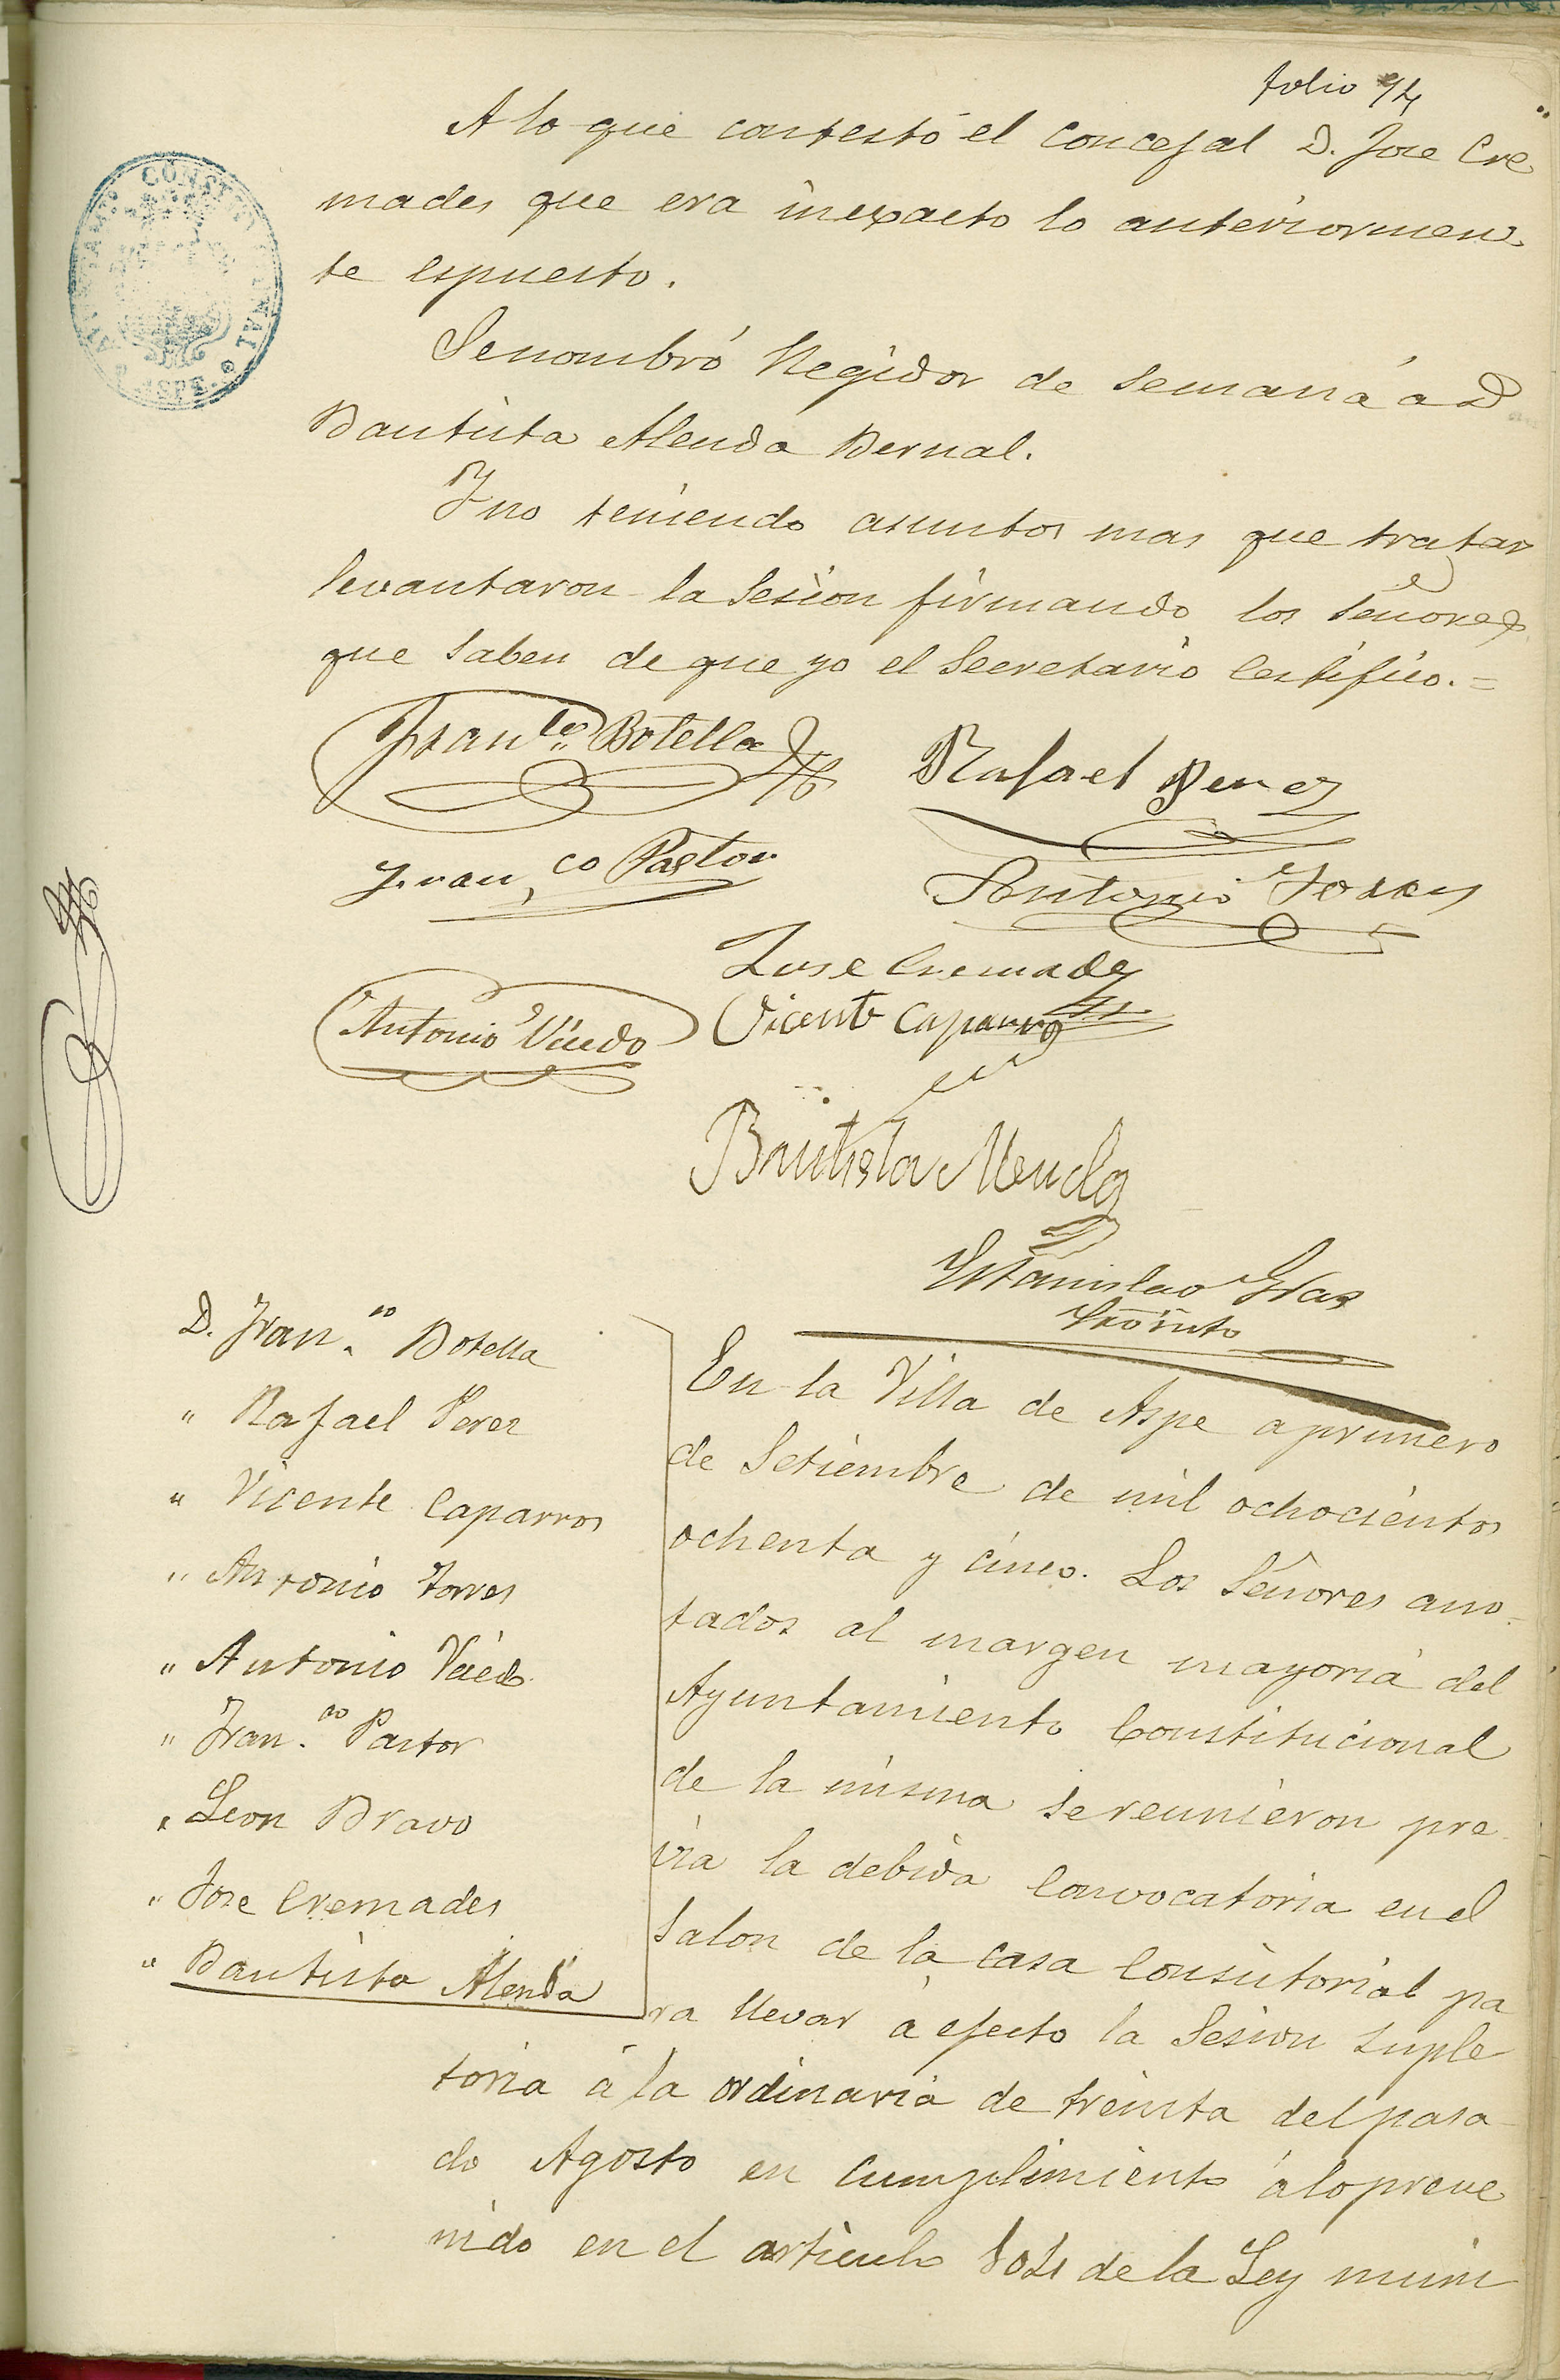 folio 94
A lo que contestó el concejal D. Jose Cre
mades que era inexacto lo anteriormen
te espuesto.
Se nombró Regidor de semana á D
Bautista Alenda Bernal.
Y no teniendo asuntos mas que tratar
levantaron la Sesion firmando los Señores
que saben de que yo el Secretario Certifico.=
AYUNTAMIENTO CONSTITUCIONAL
ASPE.
Fran.co Botella
Rafael Perez
Fran,co Pastor
Antonio Torres
Jose Cremades
Antonio Vicedo
Vicente Caparros
Bautista Alenda
Estanislao Gras
D. Fran.co Botella
" Rafael Perez
" Vicente Caparros
" Antonio Torres
" Antonio Vicedo
" Fran.co Pastor
" Leon Bravo
" Jose Cremades
" Bautista Alenda
En la Villa de Aspe a primero
de Setiembre de mil ochocientos
ochenta y cinco. Los Señores ano-
tados al margen mayoria del
Ayuntamiento Constitucional
de la misma se reunieron pre
via la debida Convocatoria en el
Salon de la Casa Consistorial pa
ra llevar á efecto la Sesion suple
toria á la ordinaria de treinta del pasa-
do Agosto en cumplimiento á lo preve
nido en el articulo 104 de la Ley muni